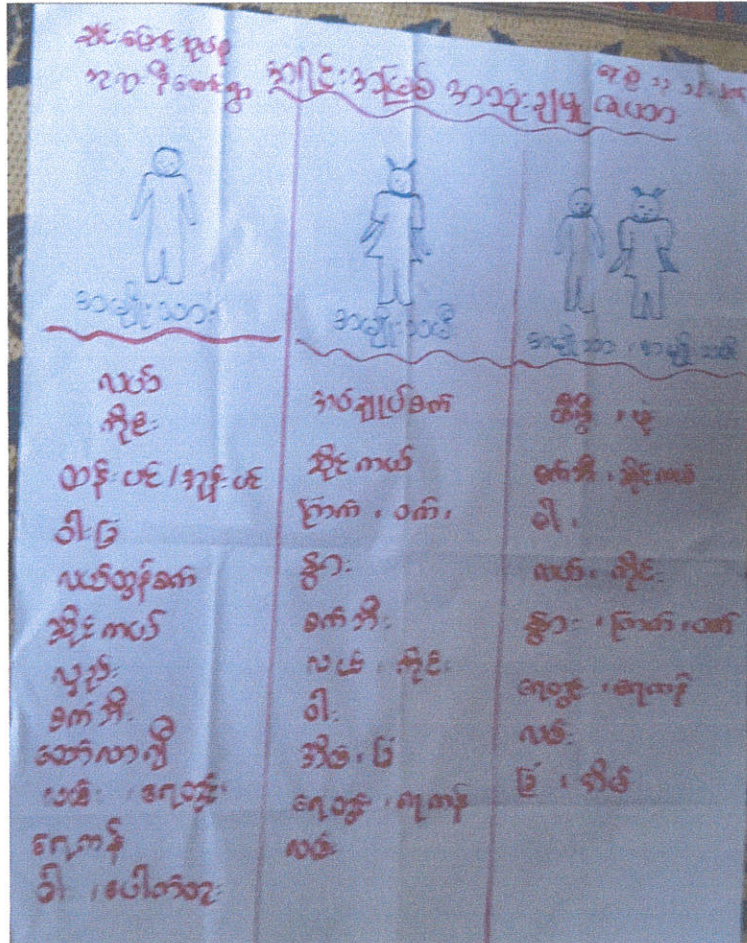 အရင်းအမြစ် အသုံးချမှု ဇယား
အမျိုးသား
အမျိုးသမီး
အမျိုးသား ၊ အမျိုးသမီး
လယ်
ကိုင်း
ထန်းပင် / အုန်းပင်
ဝါး ခြံ
လယ်ထွန်စက်
ဆိုင်ကယ်
လှည်း
စက်ဘီး
ထော်လာဂျီ
လမ်း ၊ ရေတွင်း
ရေကန်
ဝါး ၊ ပေါက်တူး
အပ်ချုပ်စက်
ဆိုင်ကယ်
ကြက် ၊ ဝက် ၊
နွား
စက်ဘီး
လယ် ၊ ကိုင်း
ဝါး
အိမ် ၊ ခြံ
ရေတွင်း ၊ ရေကန်
လမ်း
တီဗွီ ၊ ဖုန်း
စက်ဘီး ၊ ဆိုင်ကယ်
ဝါး ၊
လယ် ၊ ကိုင်း
နွား ၊ ကြက် ၊ ဝက်
ရေတွင်း ၊ ရေကန်
လမ်း
ခြံ ၊ အိမ်